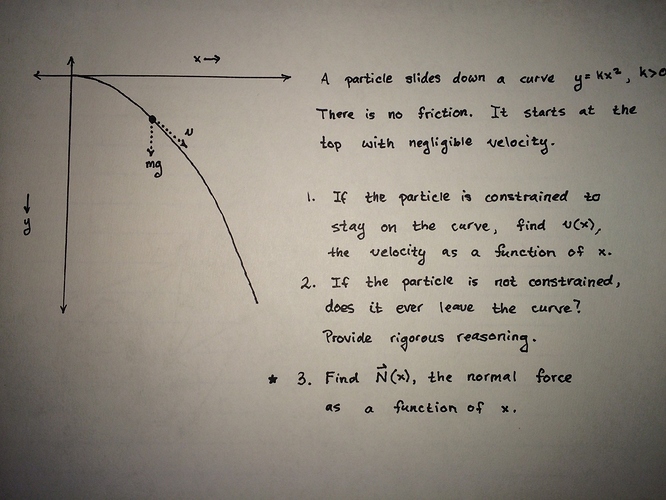 x →
A particle slides down a curve y = kx², k>0
There is no friction. It starts at the
top with negligible velocity.
v
mg
y
1. If the particle is constrained to
stay on the curve, find v(x),
the velocity as a function of x.
2. If the particle is not constrained,
does it ever leave the curve?
Provide rigorous reasoning.
★ 3. Find N⃗(x), the normal force
as a function of x.